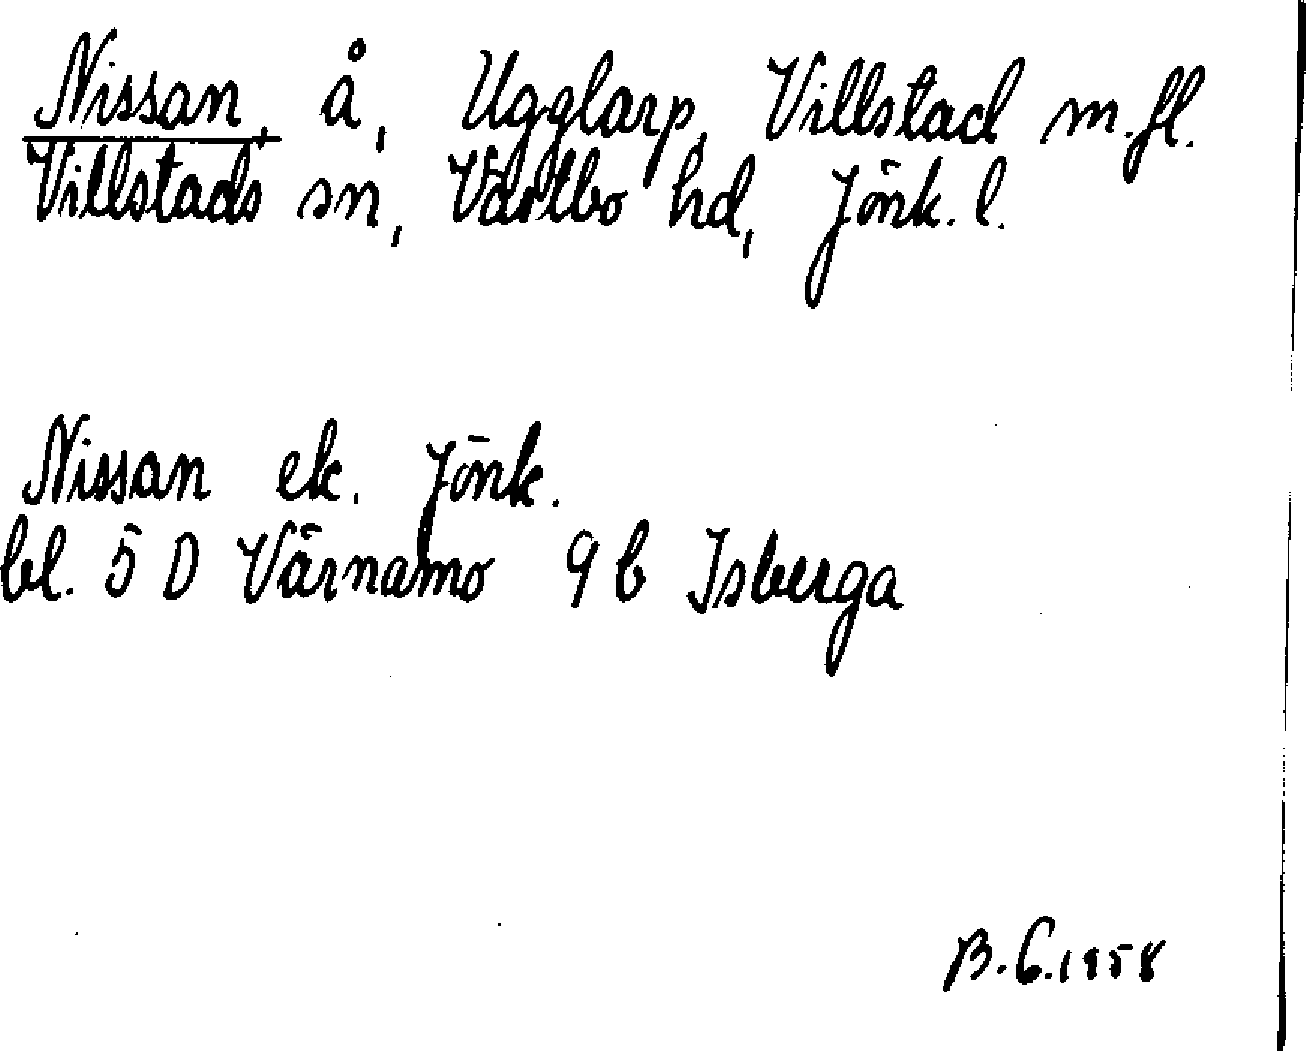 Nissan, å, Ugglarp, Villstad m.fl.
Villstads sn, Västbo hd, Jönk. l.
Nissan ek. Jönk.
bl. 5 D Värnamo 9 b Isberga
B.G.1958